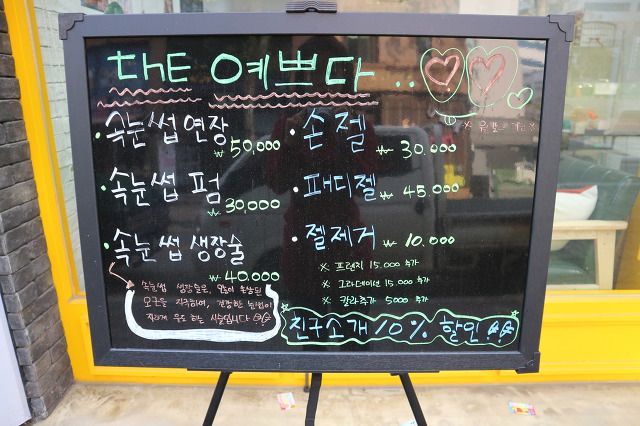 thE 예쁘다..
· 속눈썹 연장 ₩50,000
· 속눈썹 펌 ₩30,000
· 속눈썹 생장술 ₩40,000
속눈썹 생장술은,
건강한 속눈썹이
자라게 유도 하는 시술입니다
· 손 젤 ₩ 30.000
· 패디젤 ₩ 45.000
· 젤제거 ₩ 10.000
※ 프렌치 15.000 추가
※ 그라데이션 15.000 추가
※ 칼라추가 5000 추가
친구소개 10% 할인